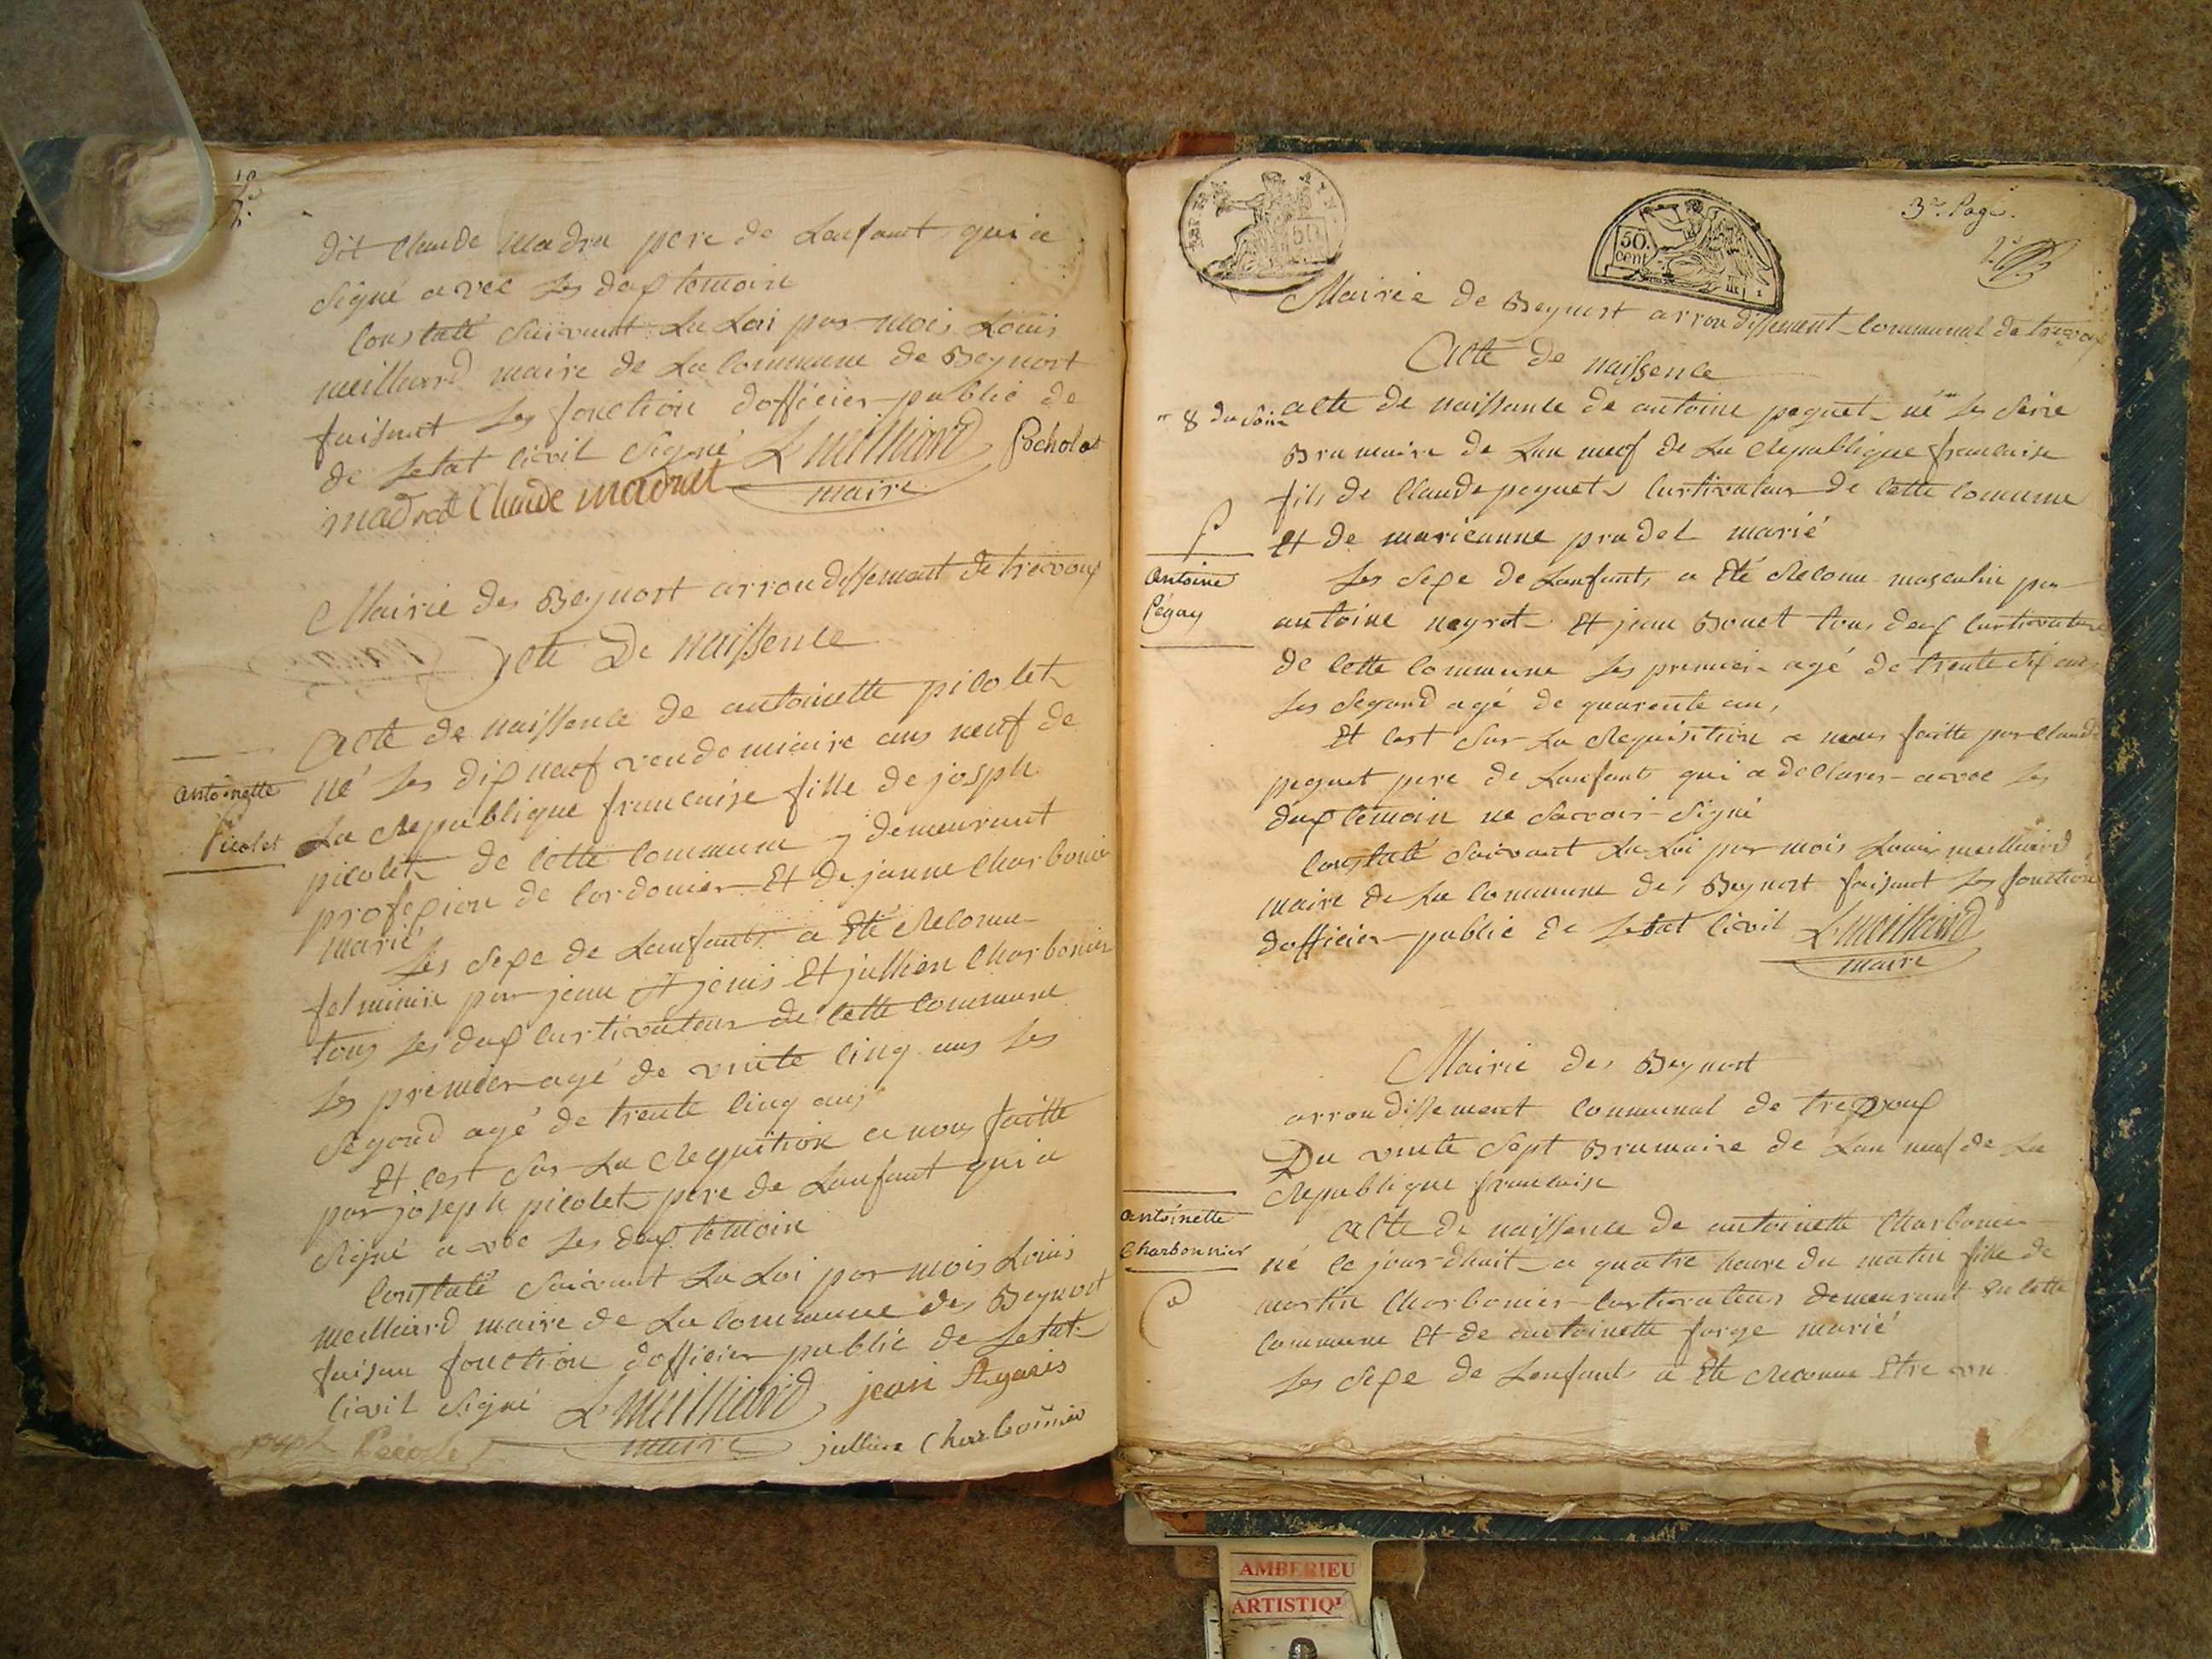 dit Claude madru pere de Lanfant qui a
signé avec les deux temoin
Constaté suivant La Loi par mois Louis
meilliard maire de La commune de Beynost
faisant les fonction dofficier public de
de Letat civil signé L meilliard Pocholat
madret Claude madret maire
Mairie des Beynost arrondissement de trevoux
Acte De naissence
Acte de naissence de antoinette picolet
Antoinette
Picolet
né les dix neuf vendemiaire ans neuf de
La Republique francaise fille de josph
picolet de cette commune y demeurant
profesion de cordonier Et de janne Charbonier
marié
Les sexe de Lanfants a Eté Reconu
felminin par jean St jenis Et jullien Charbonier
tous les deux curtivateur de cette commune
les premier agé de vinte cinq ans les
segond agé de trente cinq ans
Et cest sur La Requition a nous faitte
par joseph picolet pere de Lanfant qui a
signé avec les deux temoin
Constaté suivant La Loi par mois Louis
meilliard maire de La commune des Beynost
faisan fonction dofficier public de Letat
civil signé L meilliard jean St genis
maire jullien Charbonnier
3e. Page.
50.
cent
Mairie de Beynost arrondissement communal de trevoux
Acte de naissence
8 du soir
acte de naissance de antoine peguet né les seize
Brumaire de Lan neuf de La Republique francaise
fils de Claude peguet curtivateur de cette comune
Et de marieanne pradel marié
Antoine
Péguy
Les sexe de Lanfants a Eté Reconu masculin par
antoine neyret Et jean Bonet tous deux curtivateur
de cette commune les premier agé de trente six ans
les segond agé de quarente ans,
Et cest sur La Requisition a nous faitte par Claude
peguet pere de Lanfant qui a declarer avec les
deux temoin ne savoir signé
Constaté suivant La Loi par mois Louis meilliard
maire de La commune des Beynost faisant les fonction
dofficier public de Letat civil L meilliard
maire
Mairie des Beynost
arrondissement communal de trevoux
Du vinte sept Brumaire de Lan neuf de La
Republique francaise
Antoinette
Charbonnier
acte de naissence de antoinette Charbonier
né ce jour dhuit a quatre heure du matin fille de
martin Charbonier curtivateur demeurant En cette
commune Et de antoinette forge marié
Les sexe de Lanfants a Eté Reconu Etre un
AMBERIEU
ARTISTIQ